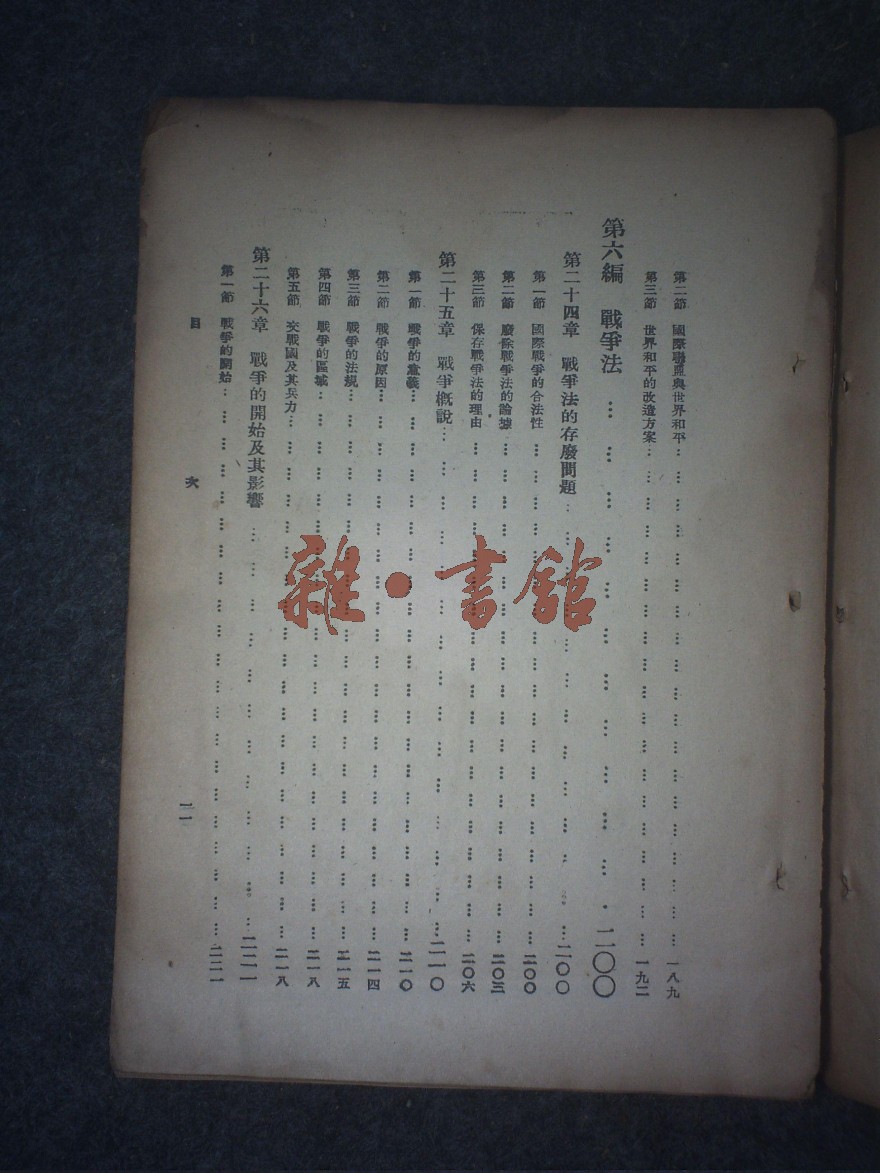 第二節 國際聯盟與世界和平…………一八九
第三節 世界和平的改造方案…………一九二
第六編 戰爭法…………二〇〇
第二十四章 戰爭法的存廢問題…………二〇〇
第一節 國際戰爭的合法性…………二〇〇
第二節 廢除戰爭法的論據…………二〇三
第三節 保存戰爭法的理由…………二〇六
第二十五章 戰爭概說…………二一〇
第一節 戰爭的意義…………二一〇
第二節 戰爭的原因…………二一四
第三節 戰爭的法規…………二一五
第四節 戰爭的區域…………二一八
第五節 交戰國及其兵力…………二一八
第二十六章 戰爭的開始及其影響…………二二一
第一節 戰爭的開始…………二二一
目 次 一一
雜·書館